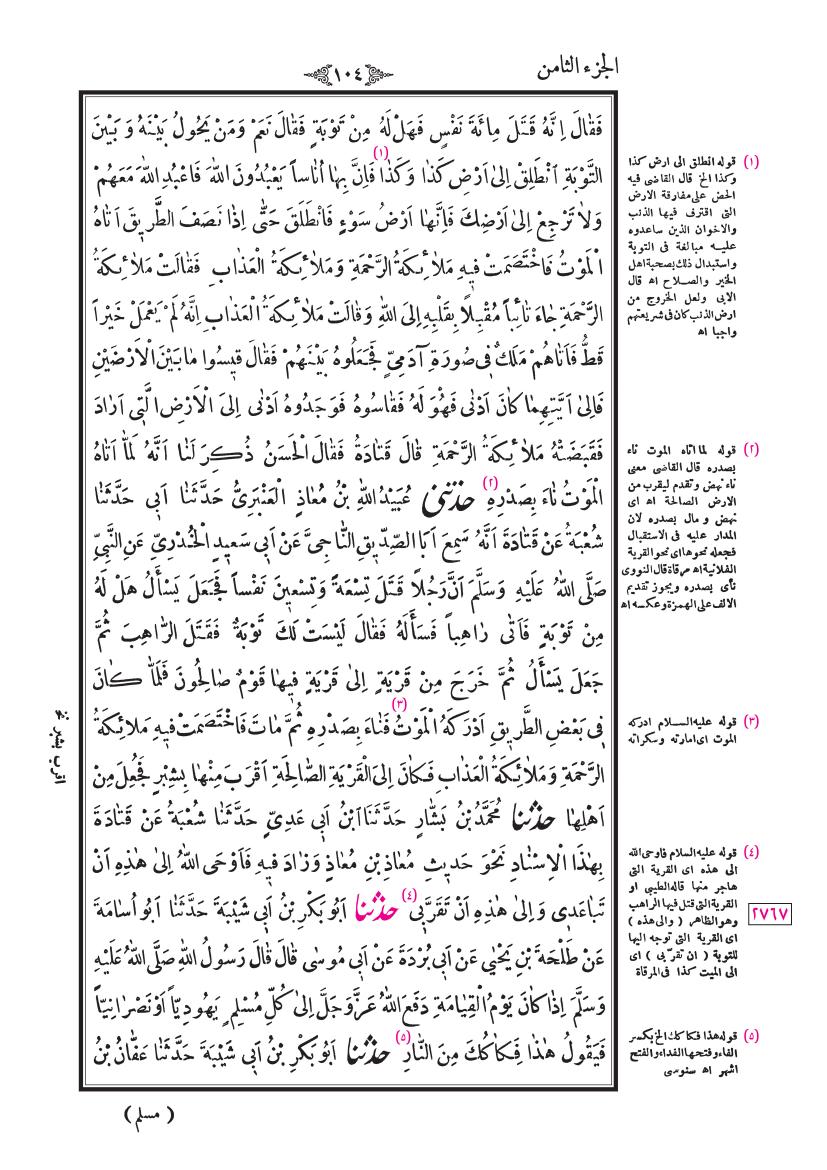 الجزء الثامن
١٠٤
فَقَالَ اِنَّهُ قَتَلَ مِائَةَ نَفْسٍ فَهَلْ لَهُ مِنْ تَوْبَةٍ فَقَالَ نَعَمْ وَمَنْ يَحُولُ بَيْنَهُ وَبَيْنَ
التَّوْبَةِ اَنْطَلِقْ اِلىٰ اَرْضِ كَذٰا وَكَذٰا (١) فَاِنَّ بِهٰا اُنٰاساً يَعْبُدُونَ اللهَ فَاعْبُدِ اللهَ مَعَهُمْ
وَلاٰ تَرْجِعْ اِلىٰ اَرْضِكَ فَاِنَّهٰا اَرْضُ سَوْءٍ فَانْطَلَقَ حَتّٰى اِذٰا نَصَفَ الطَّرِيقَ اَتٰاهُ
الْمَوْتُ فَاخْتَصَمَتْ فِيهِ مَلاٰئِكَةُ الرَّحْمَةِ وَمَلاٰئِكَةُ الْعَذٰابِ فَقٰالَتْ مَلاٰئِكَةُ
الرَّحْمَةِ جٰاءَ تٰائِباً مُقْبِلاً بِقَلْبِهِ اِلَى اللهِ وَقٰالَتْ مَلاٰئِكَةُ الْعَذٰابِ اِنَّهُ لَمْ يَعْمَلْ خَيْراً
قَطُّ فَاَتٰاهُمْ مَلَكٌ فِى صُورَةِ آدَمِىٍّ فَجَعَلُوهُ بَيْنَهُمْ فَقٰالَ قِيسُوا مٰا بَيْنَ الْاَرْضَيْنِ
فَاِلىٰ اَيَّتِهِمٰا كٰانَ اَدْنٰى فَهُوَ لَهُ فَقٰاسُوهُ فَوَجَدُوهُ اَدْنٰى اِلَى الْاَرْضِ الَّتِى اَرٰادَ
فَقَبَضَتْهُ مَلاٰئِكَةُ الرَّحْمَةِ قٰالَ قَتٰادَةُ فَقٰالَ الْحَسَنُ ذُكِرَ لَنٰا اَنَّهُ لَمّٰا اَتٰاهُ
الْمَوْتُ نٰاءَ بِصَدْرِهِ (٢) حَدَّثَنِى عُبَيْدُ اللهِ بْنُ مُعٰاذٍ الْعَنْبَرِىُّ حَدَّثَنٰا اَبِى حَدَّثَنٰا
شُعْبَةُ عَنْ قَتٰادَةَ اَنَّهُ سَمِعَ اَبَا الصِّدِّيقِ النّٰاجِىَّ عَنْ اَبِى سَعِيدٍ الْخُدْرِىِّ عَنِ النَّبِىِّ
صَلَّى اللهُ عَلَيْهِ وَسَلَّمَ اَنَّ رَجُلاً قَتَلَ تِسْعَةً وَتِسْعِينَ نَفْساً فَجَعَلَ يَسْأَلُ هَلْ لَهُ
مِنْ تَوْبَةٍ فَاَتٰى رٰاهِباً فَسَأَلَهُ فَقٰالَ لَيْسَتْ لَكَ تَوْبَةٌ فَقَتَلَ الرّٰاهِبَ ثُمَّ
جَعَلَ يَسْأَلُ ثُمَّ خَرَجَ مِنْ قَرْيَةٍ اِلىٰ قَرْيَةٍ فِيهٰا قَوْمٌ صٰالِحُونَ فَلَمّٰا كٰانَ
فِى بَعْضِ الطَّرِيقِ اَدْرَكَهُ الْمَوْتُ (٣) فَنٰاءَ بِصَدْرِهِ ثُمَّ مٰاتَ فَاخْتَصَمَتْ فِيهِ مَلاٰئِكَةُ
الرَّحْمَةِ وَمَلاٰئِكَةُ الْعَذٰابِ فَكٰانَ اِلَى الْقَرْيَةِ الصّٰالِحَةِ اَقْرَبَ مِنْهٰا بِشِبْرٍ فَجُعِلَ مِنْ
اَهْلِهٰا حَدَّثَنٰا مُحَمَّدُ بْنُ بَشّٰارٍ حَدَّثَنَا ابْنُ اَبِى عَدِىٍّ حَدَّثَنٰا شُعْبَةُ عَنْ قَتٰادَةَ
بِهٰذَا الْاِسْنٰادِ نَحْوَ حَدِيثِ مُعٰاذِ بْنِ مُعٰاذٍ وَزٰادَ فِيهِ فَاَوْحَى اللهُ اِلىٰ هٰذِهِ اَنْ
تَبٰاعَدِى وَاِلىٰ هٰذِهِ اَنْ تَقَرَّبِى (٤) حَدَّثَنٰا اَبُو بَكْرِ بْنُ اَبِى شَيْبَةَ حَدَّثَنٰا اَبُو اُسٰامَةَ
عَنْ طَلْحَةَ بْنِ يَحْيٰى عَنْ اَبِى بُرْدَةَ عَنْ اَبِى مُوسٰى قٰالَ قٰالَ رَسُولُ اللهِ صَلَّى اللهُ عَلَيْهِ
وَسَلَّمَ اِذٰا كٰانَ يَوْمُ الْقِيٰامَةِ دَفَعَ اللهُ عَزَّ وَجَلَّ اِلىٰ كُلِّ مُسْلِمٍ يَهُودِيّاً اَوْ نَصْرٰانِيّاً
فَيَقُولُ هٰذٰا فِكٰاكُكَ مِنَ النّٰارِ (٥) حَدَّثَنٰا اَبُو بَكْرِ بْنُ اَبِى شَيْبَةَ حَدَّثَنٰا عَفّٰانُ بْنُ
(١) قوله انطلق الى ارض كذا
وكذا الخ قال القاضى فيه
الحض على مفارقة الارض
التى اقترف فيها الذنب
والاخوان الذين ساعدوه
عليه مبالغة فى التوبة
واستبدال ذلك بصحبة اهل
الخير والصلاح اه قال
الابى ولعل الخروج من
ارض الذنب كان فى شريعتهم
واجبا اه
(٢) قوله لما اتاه الموت ناء
بصدره قال القاضى معنى
ناء نهض وتقدم ليقرب من
الارض الصالحة اه اى
نهض و مال بصدره لان
المدار عليه فى الاستقبال
فجعله نحوها اى نحو القرية
الفلانية اه مرقاة قال النووى
نأى بصدره ويجوز تقديم
الالف على الهمزة وعكسه اه
(٣) قوله عليه السلام ادركه
الموت اى امارته وسكراته
(٤) قوله عليه السلام فاوحى الله
الى هذه اى القرية التى
هاجر منها قاله الطيبى او
القرية التى قتل فيها الراهب
وهو الظاهر ( والى هذه )
اى القرية التى توجه اليها
للتوبة ( ان تقربى ) اى
الى الميت كذا فى المرقاة
(٥) قوله هذا فكاكك الخ بكسر
الفاء وفتحها الفداء والفتح
اشهر اه سنوسى
٢٧٦٧
اقرب بشبر نخ
( مسلم )